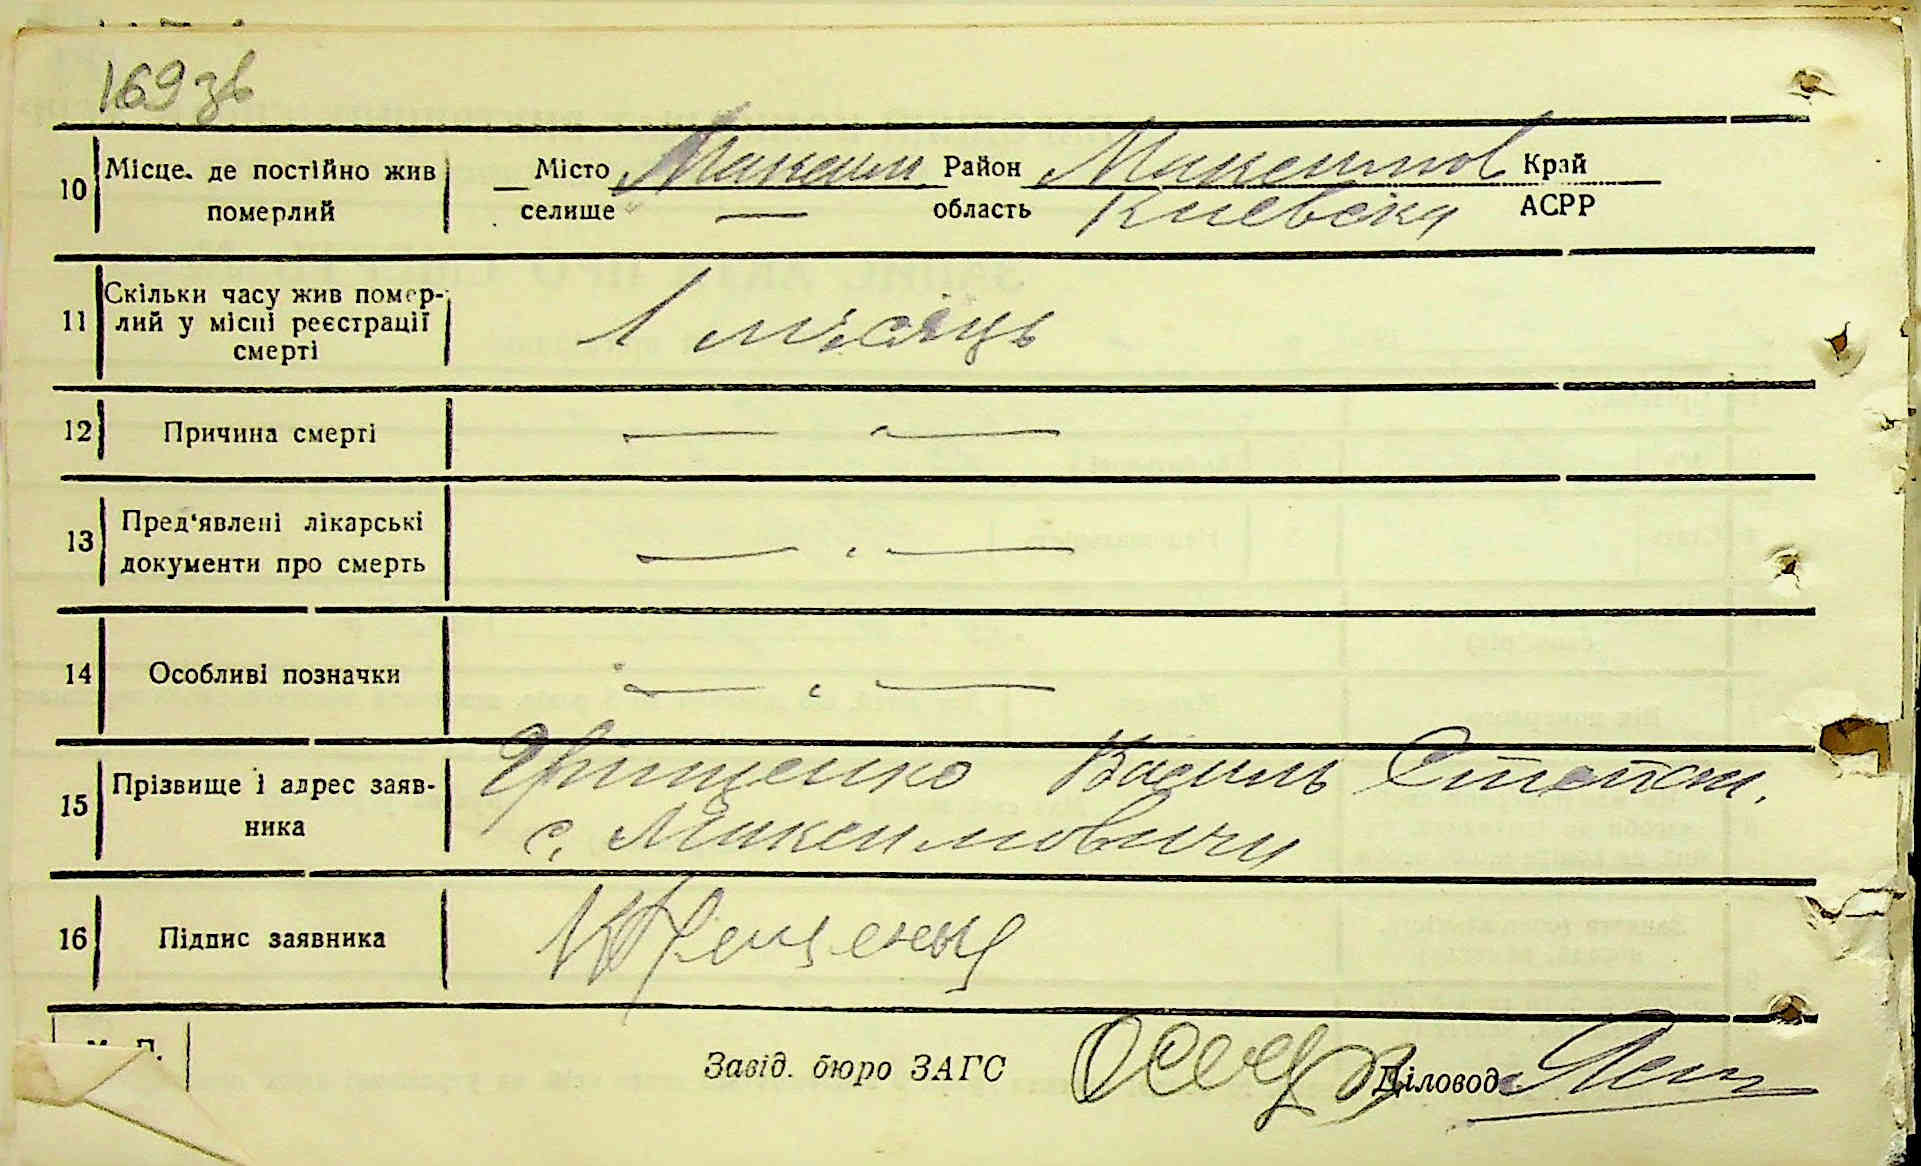 169 зв
10 Місце, де постійно жив померлий
Місто Максим. Район Максимов Край
селище — область Киевска АСРР
11 Скільки часу жив помер-
лий у місці реєстрації
смерті
1 місяць
12 Причина смерті — " —
13 Пред'явлені лікарські
документи про смерть — " —
14 Особливі позначки — " —
15 Прізвище і адрес заяв-
ника
Грищенко Василь Степан.
с. Максимовичи
16 Підпис заявника
М. П.
Завід. бюро ЗАГС Діловод